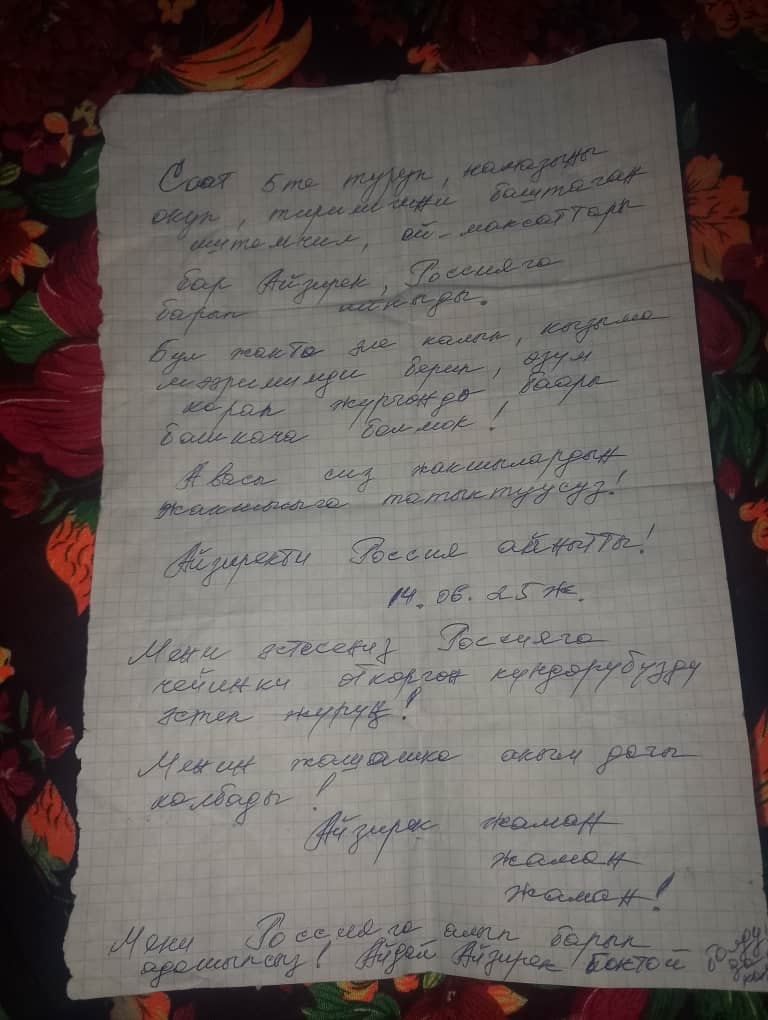 Саат 5те туруп, намазыңы
окуп, тиричилигин баштаган
иштемчил, ой-максаттары
бар Айзирек, Россияга
барып айныды.
Бул жакта эле калып, кызыма
мээримимди берип, өзүм
карап жүргөндө баары
башкача болмок!
Авасы сиз жакшылардын
жакшысыга татыктуусуз!
Айзиректи Россия айнытты!
14.06.25ж.
Мени эстесеңиз Россияга
чейинки өткөргөн күндөрүбүздү
эстеп жүрүң!
Менин жашашка акым дагы
калбады!
Айзирек жаман
жаман
жаман!
Мени Россияга алып барып
адашыпсыз! Айдай Айзирек боктой
болду